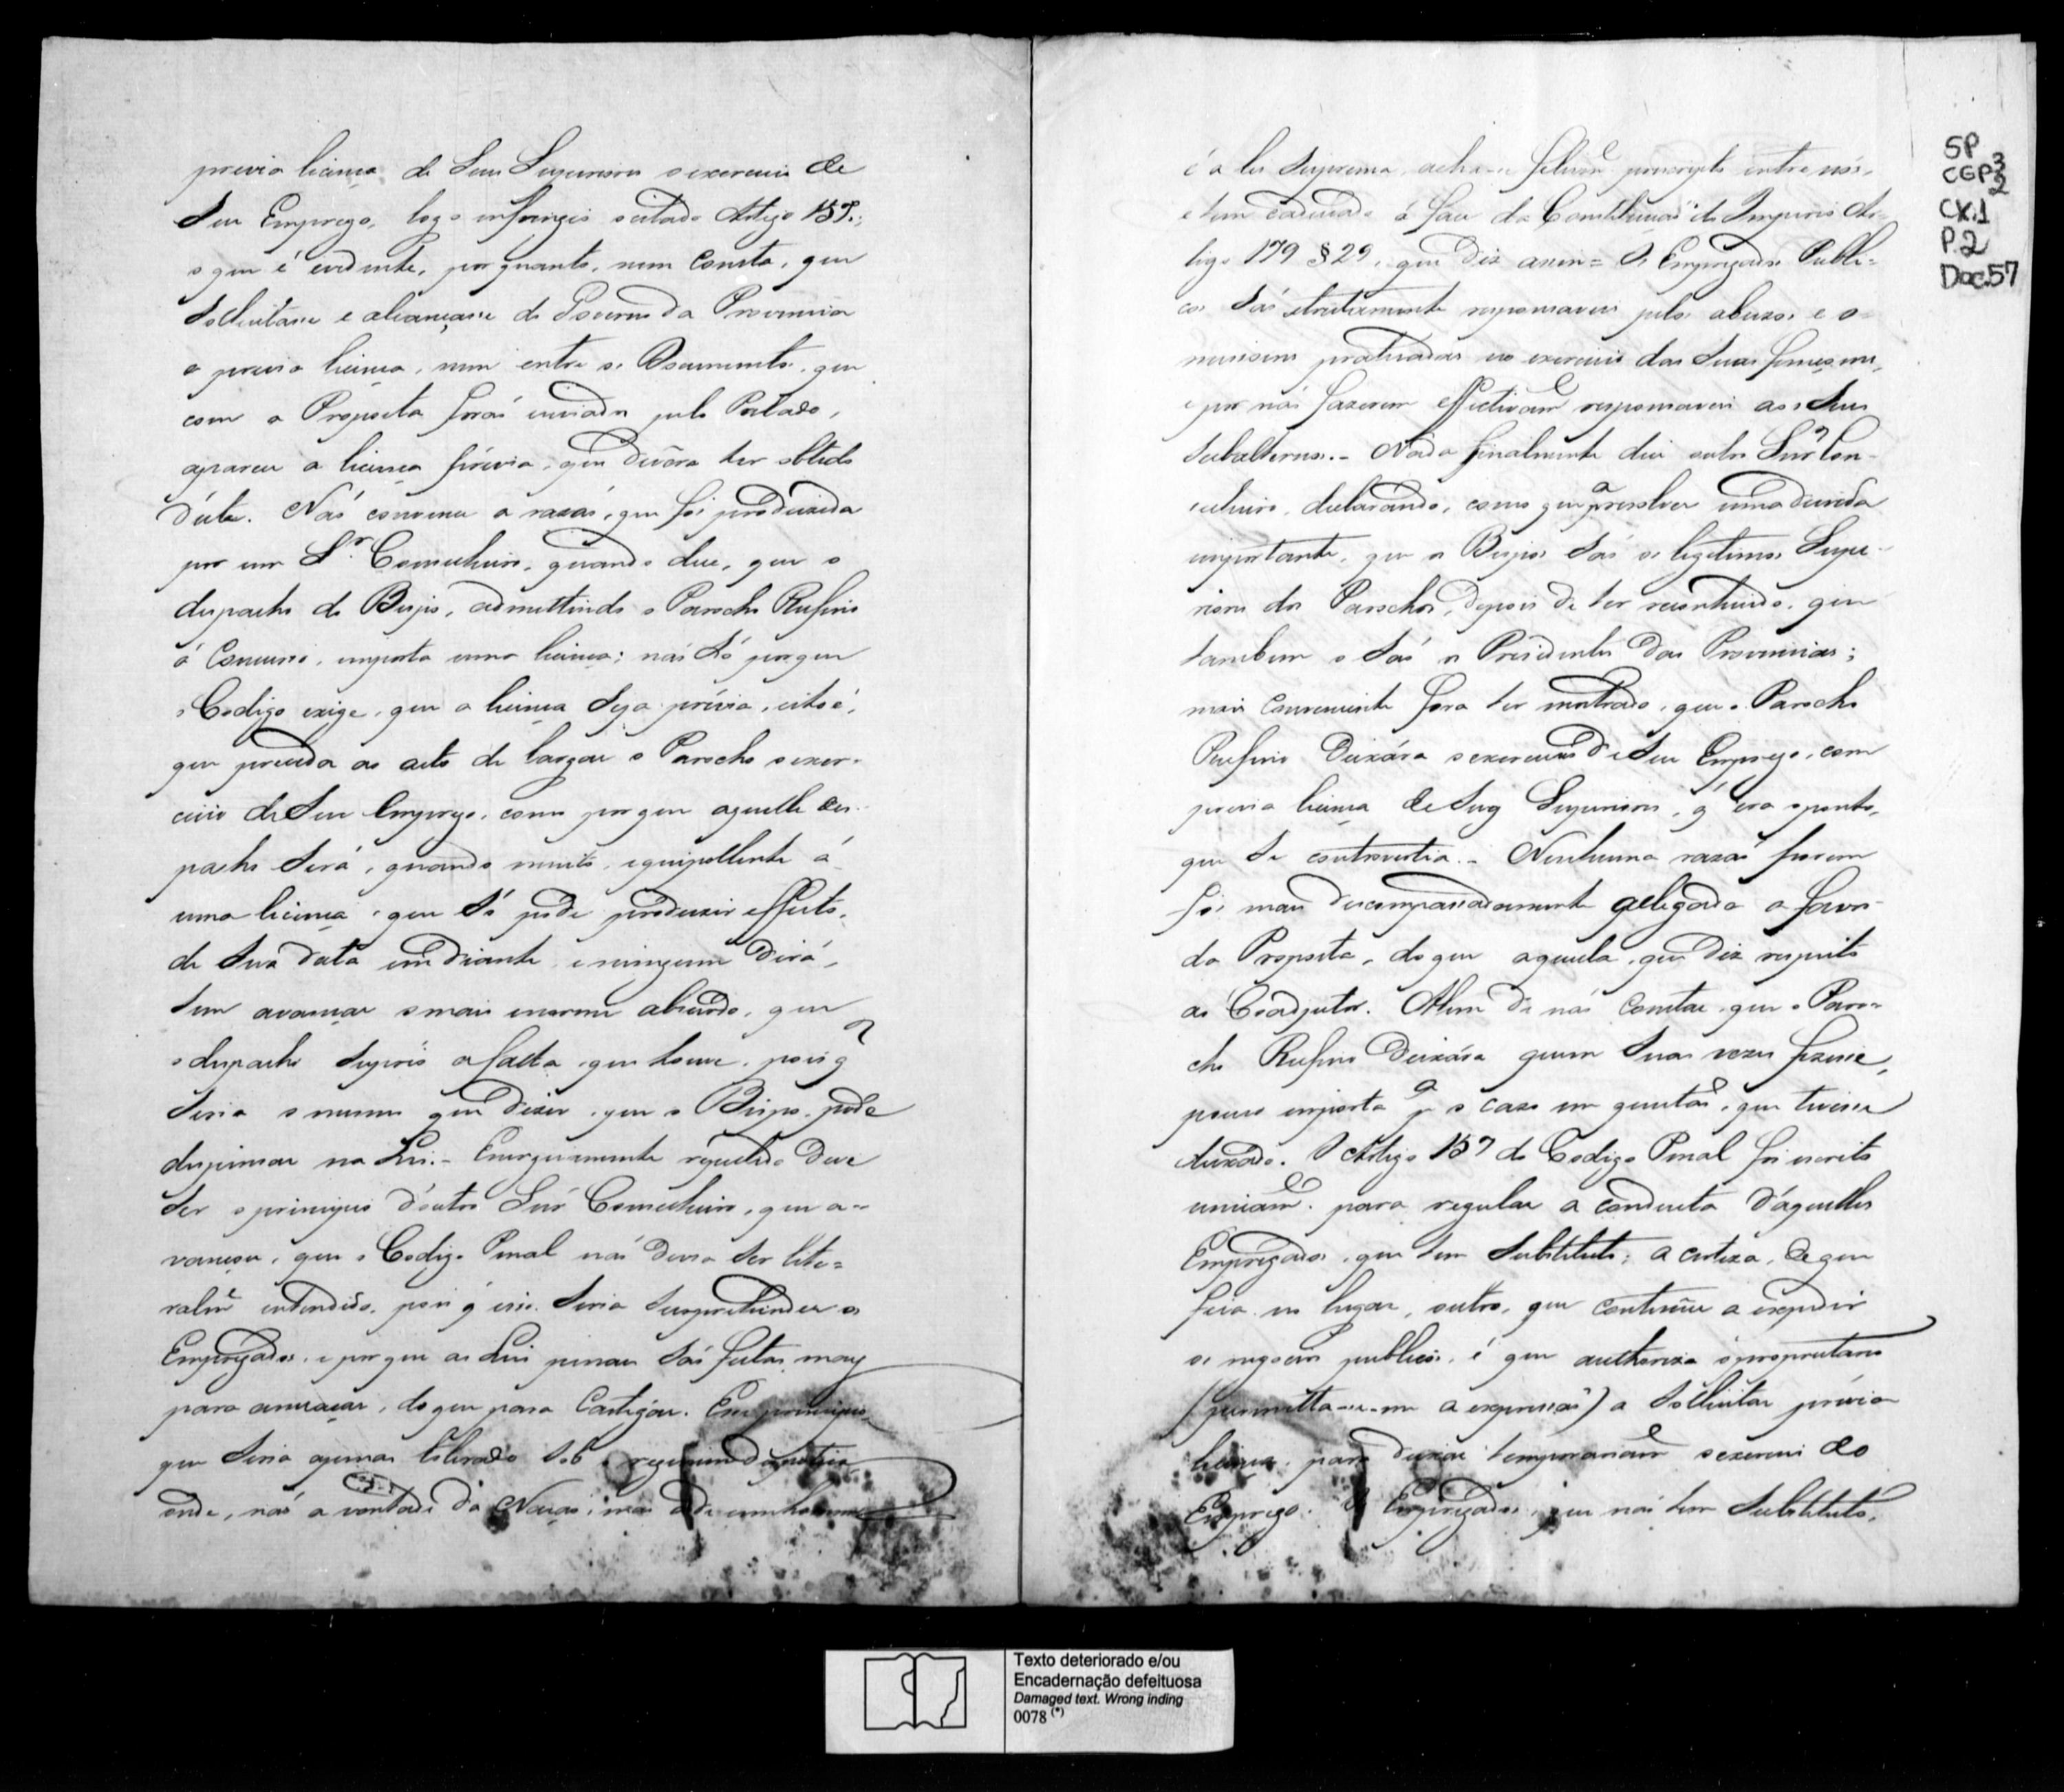 previa licença de Seus Superiores o exercicio de
Seu Emprego, logo infringio o citado Artigo 157.;
o que é evidente, porquanto, nem consta, que
Sollicitasse e alcançasse do Governo da Provincia
a previa licença, nem entre os Documentos, que
com a Proposta forão enviados pelo Prelado,
aparece a licença prévia, que devêra ter obtido
d'este. Não convence a razão, que foi produzida
por um Sr. Conselheiro, quando disse, que o
despacho do Bispo, admittindo o Parocho Rufino
á Concurso, importa uma licença; não só porque
o Codigo exige, que a licença Seja prévia, isto é,
que preceda ao acto de largar o Parocho o exer-
cicio de Seu Emprego, como porque aquelle des-
pacho Será, quando muito, equipollente á
uma licença, que Só pode produzir effeitos
de Sua data em diante, e ninguem dirá,
Sem avançar o mais enorme absurdo, que
o despacho Suprio a falta, que houve, pois q̃
Seria o mesmo que dizer, que o Bispo pode
dispensar na Lei.- Energicamente repellido deve
Ser o principio d'outro Snr. Conselheiro, que a-
vançou, que o Codigo Penal não devia Ser lite-
ralme entendido, pois q̃ isso Seria Surprehender os
Empregados, e por que as Leis penaes São feitas mais
para ameaçar, do que para Castigar. Esse principio,
que Seria apenas tolerado Sob o regimen despotico
onde, não a vontade da Nação, mas a de um homem
é a lei Suprema, acha-se felizme proscripto entre nós,
e tem caducado á face da Constituição do Imperio Ar-
tigo 179 § 29, que diz assim = Os Empregados Publi-
cos São strictamente responsaveis pelos abusos e o-
missoens praticadas no exercicio das Suas funcçoens,
e por não fazerem effectivame responsaveis aos Seus
Subalternos.- Nada finalmente diz outro Snr Con-
selheiro, declarando, como que pa resolver uma duvida
importante, que os Bispos São os legitimos Supe-
riores dos Parochos, depois de ter reconhecido, que
tambem o São os Presidentes das Provincias;
mais conveniente fora ter mostrado, que o Parocho
Rufino Deixára o exercicio de Seu Emprego, com
previa licença de Seus Superiores, q̃ era o ponto,
que Se controvertia.- Nenhuma razão porem
foi mais descompassadamente allegada a favor
da Proposta, do que aquella, que diz respeito
ao Coadjutor. Alem de não constar, que o Paro-
cho Rufino Deixára quem Suas vezes fizesse,
pouco importa pa o caso em questão, que tivesse
deixado. O Artigo 157 do Codigo Penal foi escrito
unicame para regular a conducta d'aquelles
Empregados, que tem Substituto; a certeza, de que
fica em lugar, outro, que continúe a expedir
os negocios publicos, é que authoriza o proprietario
(permitta-se-me a expressão) a Sollicitar prévia
licença para deixar temporariame o exercicio do
Emprego. Os Empregados, que não tem Substituto,
SP
CGP3
2
CX.1
P.2
Doc.57
Texto deteriorado e/ou
Encadernação defeituosa
Damaged text. Wrong inding
0078 (*)